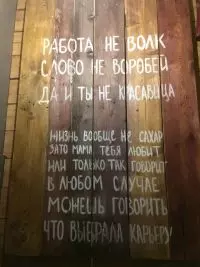 РАБОТА НЕ ВОЛК
СЛОВО НЕ ВОРОБЕЙ
ДА И ТЫ НЕ КРАСАВИЦА
ЖИЗНЬ ВООБЩЕ НЕ САХАР
ЗАТО МАМА ТЕБЯ ЛЮБИТ
ИЛИ ТОЛЬКО ТАК ГОВОРИТ
В ЛЮБОМ СЛУЧАЕ
МОЖЕШЬ ГОВОРИТЬ
ЧТО ВЫБРАЛА КАРЬЕРУ